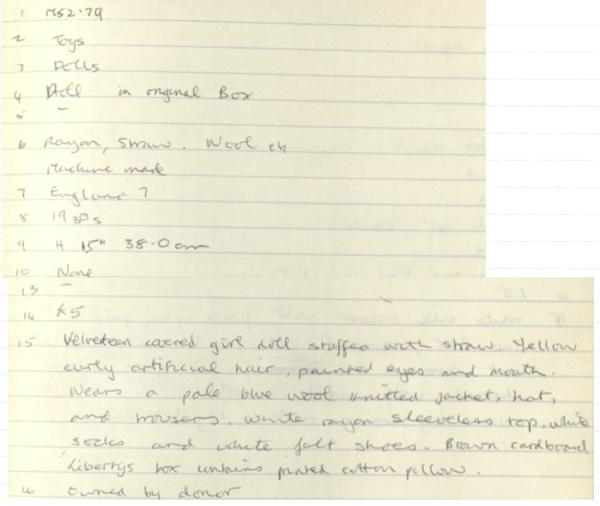 1 M52.79
2 Toys
3 Dolls
4 Doll in original Box
5 –
6 Rayon, Straw. Wool etc
Machine made
7 England ?
8 1930s
9 H 15" 38.0 cm
10 None
13
14 £5
15 Velveteen covered girl doll stuffed with straw. Yellow
curly artificial hair, painted eyes and mouth.
Wears a pale blue wool knitted jacket, hat,
and trousers. White rayon sleeveless top, white
socks and white felt shoes. Brown cardboard
Libertys box contains printed cotton pillow.
16 Owned by donor